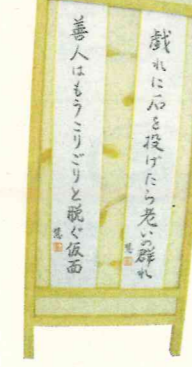 戯れに石を投げたら老いの群れ
善人はもうこりごりと脱ぐ仮面